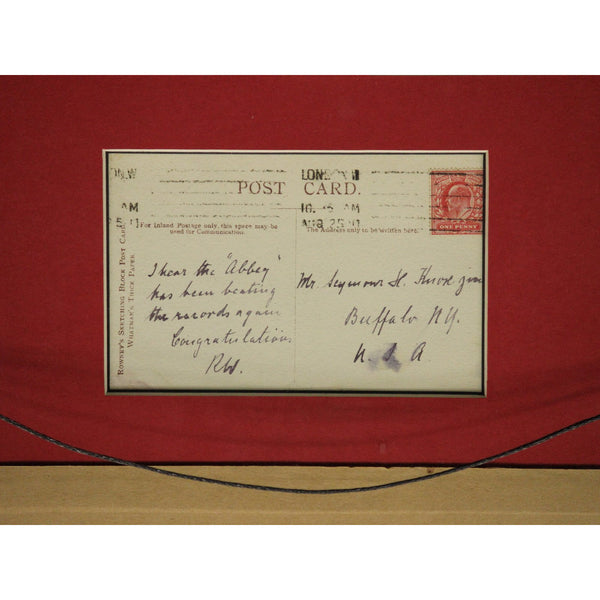 LONDON W
10.15 AM
AUG 25 11
POST CARD.
ONE PENNY
For Inland Postage only, this space may be
used for Communication.
The Address only to be written here.
ROWNEY'S SKETCHING BLOCK POST CARD
WHATMAN'S THICK PAPER
I hear the "Abbey"
has been beating
the records again
Congratulations
RW.
Mr. Seymour H. Knox Jun
Buffalo NY.
U. S. A